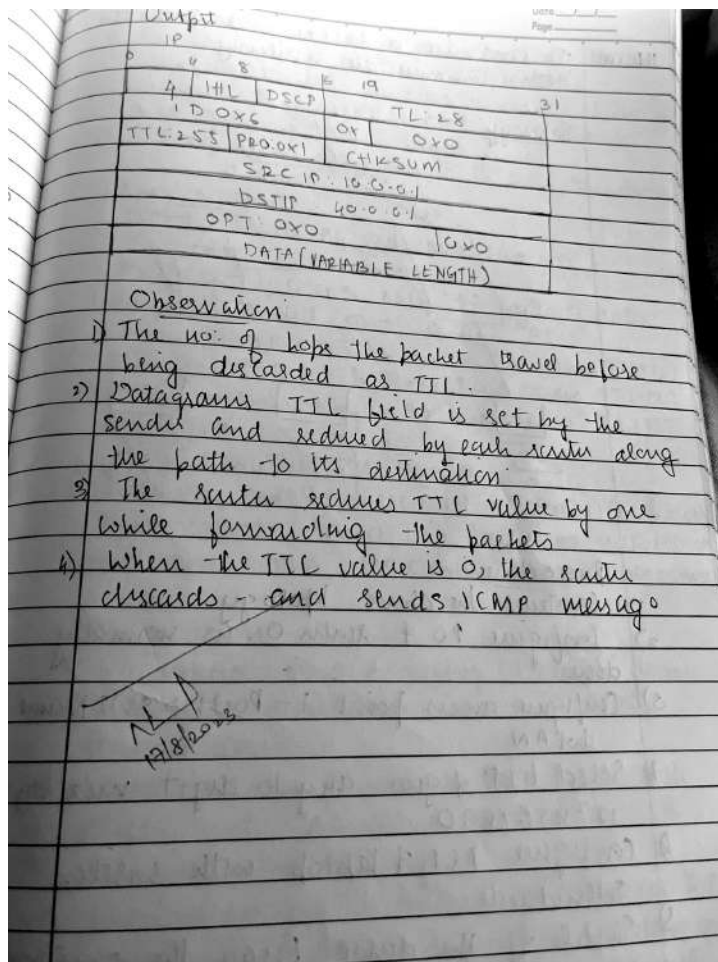 Date
Page
Output
IP
0 4 8 16 19 31
4 IHL DSCP TL: 28
ID 0x6 0x 0x0
TTL: 255 PRO: 0x1 CHKSUM
SRC IP: 10.0.0.1
DSTIP 40.0.0.1
OPT: 0x0 0x0
DATA (VARIABLE LENGTH)
Observation
1) The no. of hops the packet travel before
being discarded as TTL.
2) Datagrams TTL field is set by the
sender and reduced by each router along
the path to its destination
3) The router reduces TTL value by one
while forwarding the packets
4) When the TTL value is 0, the router
discards and sends ICMP message
17/8/2023